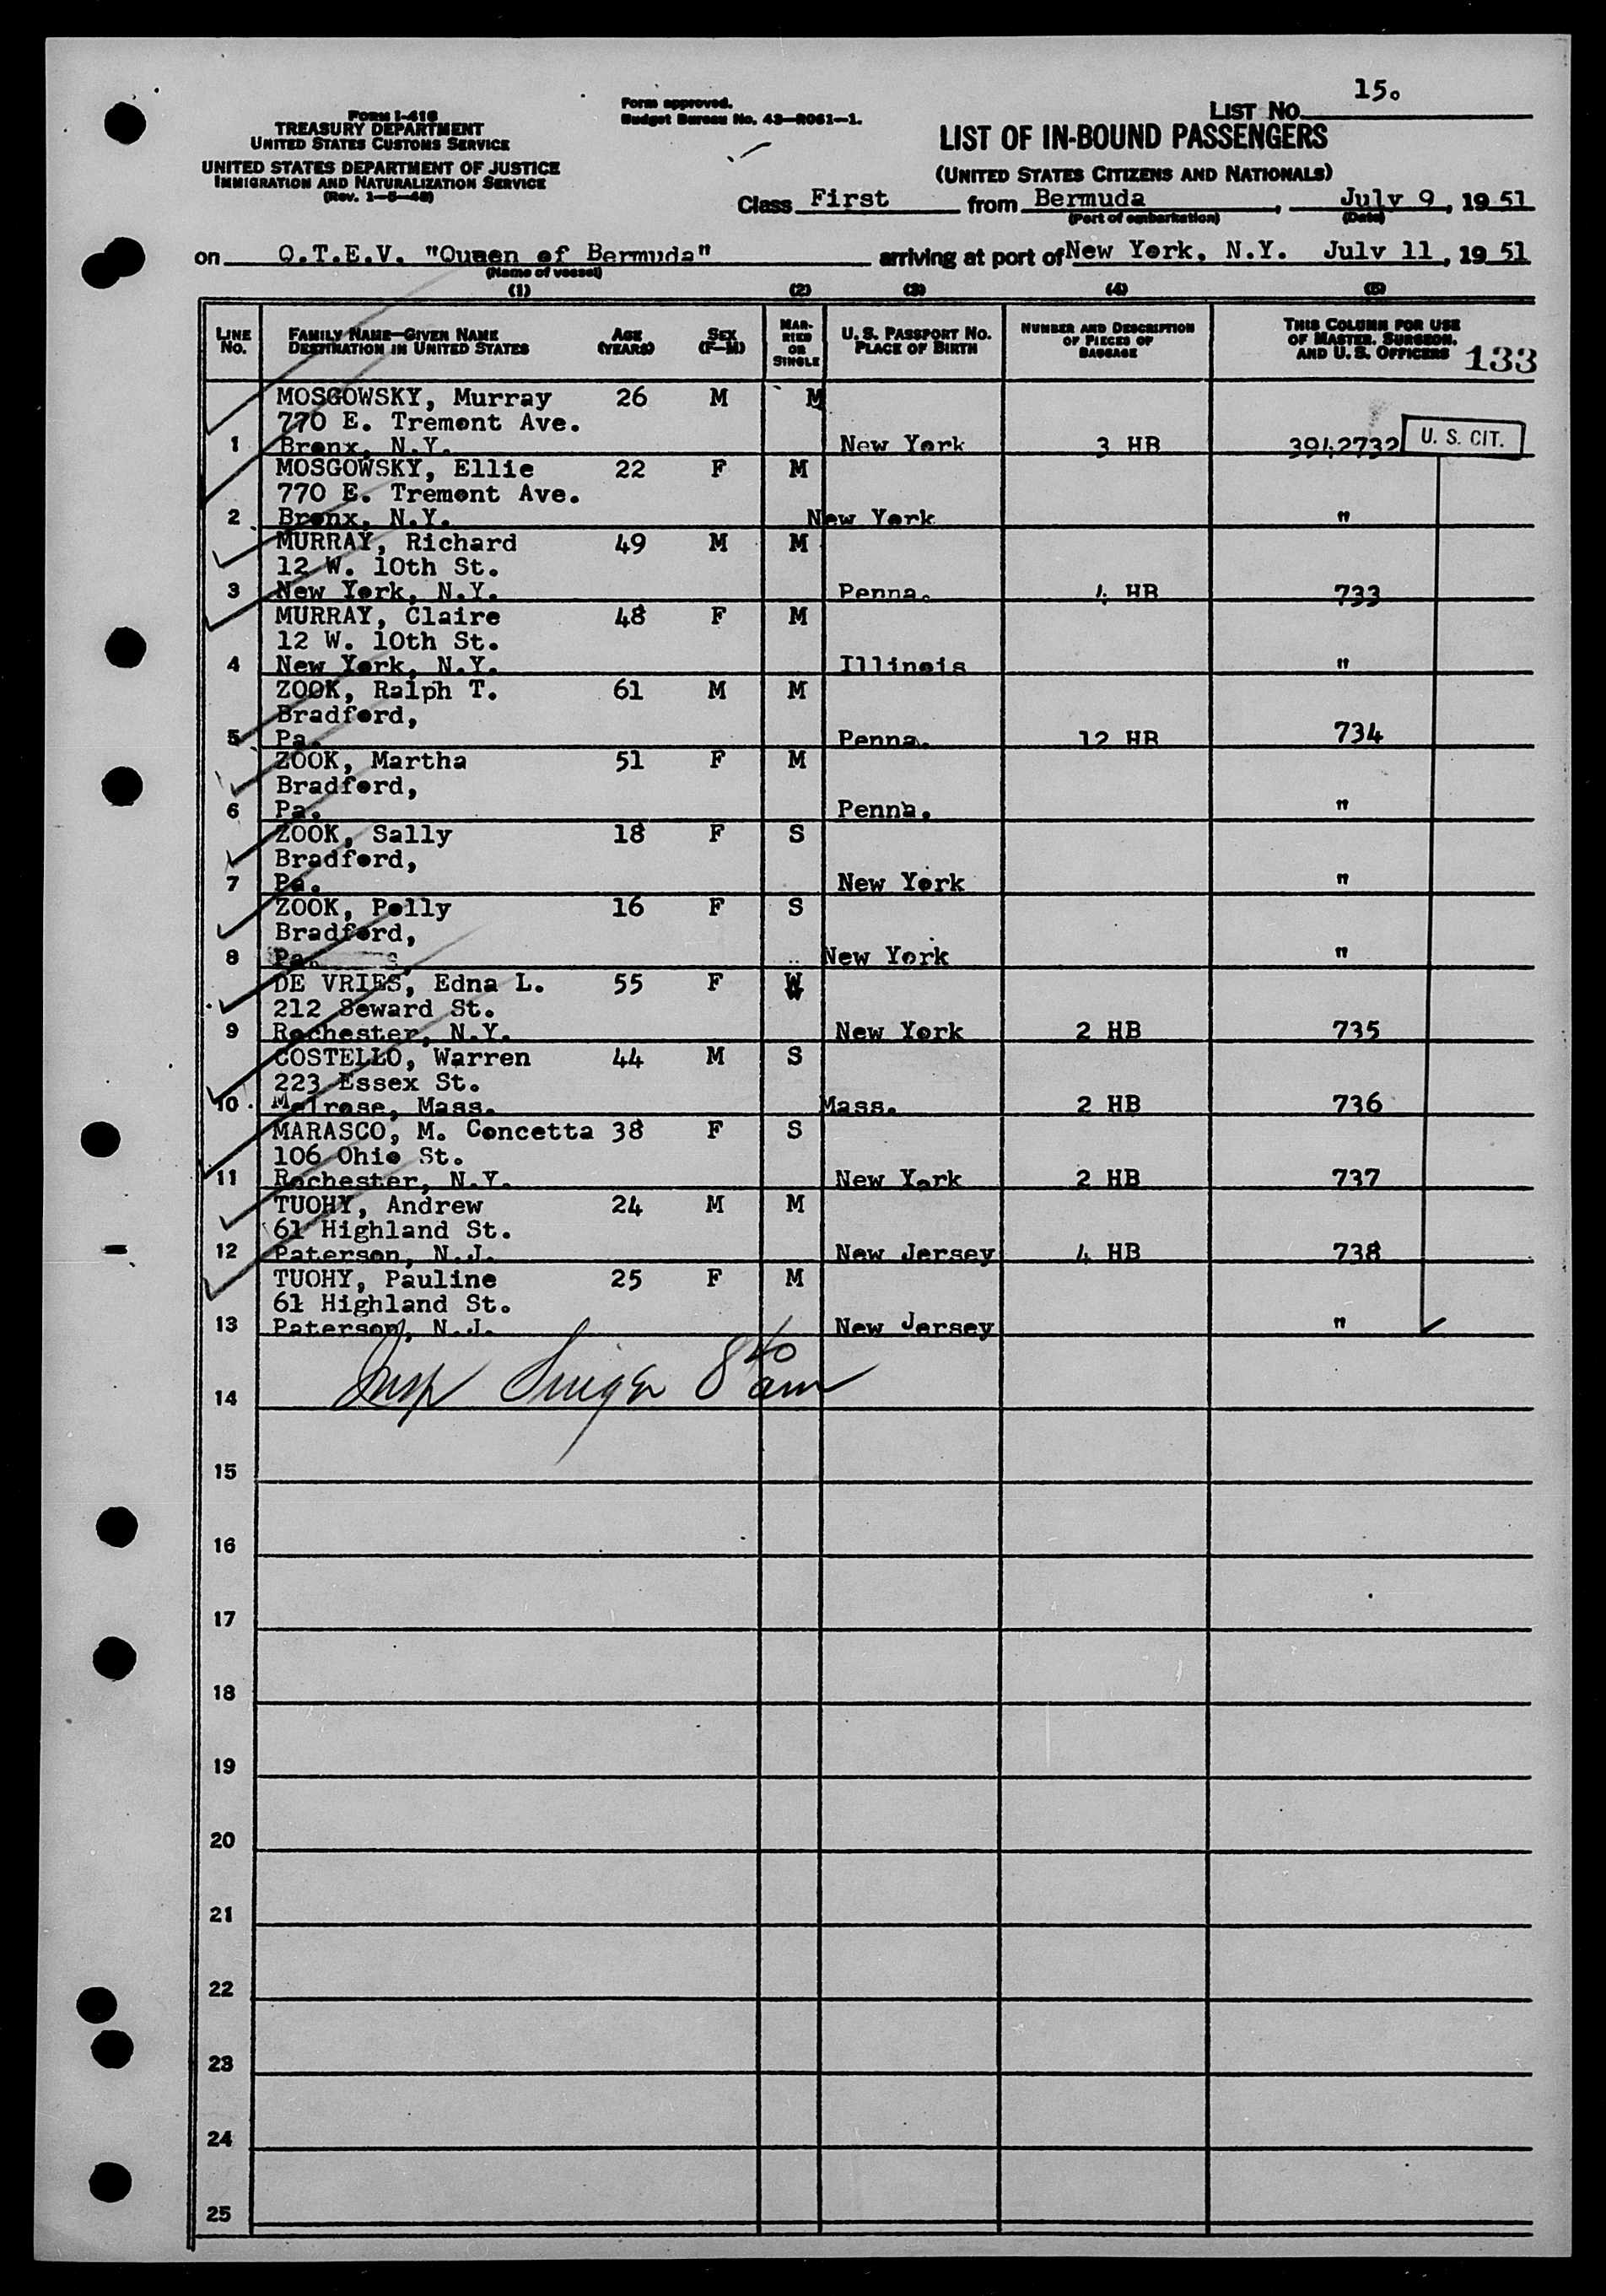 15.
LIST NO.
Form I-418
TREASURY DEPARTMENT
UNITED STATES CUSTOMS SERVICE
UNITED STATES DEPARTMENT OF JUSTICE
IMMIGRATION AND NATURALIZATION SERVICE
(Rev. 1-5-48)
Form approved.
Budget Bureau No. 43-R061-1.
LIST OF IN-BOUND PASSENGERS
(UNITED STATES CITIZENS AND NATIONALS)
Class First from Bermuda, July 9, 1951
(Port of embarkation) (Date)
on Q.T.E.V. "Queen of Bermuda" arriving at port of New York, N.Y. July 11, 1951
(Name of vessel)
(1) (2) (3) (4) (5)
LINE NO. FAMILY NAME—GIVEN NAME DESTINATION IN UNITED STATES AGE (YEARS) SEX (F—M) MARRIED OR SINGLE U. S. PASSPORT NO. PLACE OF BIRTH NUMBER AND DESCRIPTION OF PIECES OF BAGGAGE THIS COLUMN FOR USE OF MASTER, SURGEON, AND U. S. OFFICERS 133
MOSGOWSKY, Murray 26 M M
770 E. Tremont Ave.
1 Bronx, N.Y. New York 3 HB 3942732 U. S. CIT.
MOSGOWSKY, Ellie 22 F M
770 E. Tremont Ave.
2 Bronx, N.Y. New York "
MURRAY, Richard 49 M M
12 W. 10th St.
3 New York, N.Y. Penna. 4 HB 733
MURRAY, Claire 48 F M
12 W. 10th St.
4 New York, N.Y. Illinois "
ZOOK, Ralph T. 61 M M
Bradford,
5 Pa. Penna. 12 HB 734
ZOOK, Martha 51 F M
Bradford,
6 Pa. Penna. "
ZOOK, Sally 18 F S
Bradford,
7 Pa. New York "
ZOOK, Polly 16 F S
Bradford,
8 Pa. New York "
DE VRIES, Edna L. 55 F W
212 Seward St.
9 Rochester, N.Y. New York 2 HB 735
COSTELLO, Warren 44 M S
223 Essex St.
10 Melrose, Mass. Mass. 2 HB 736
MARASCO, M. Concetta 38 F S
106 Ohio St.
11 Rochester, N.Y. New York 2 HB 737
TUOHY, Andrew 24 M M
61 Highland St.
12 Paterson, N.J. New Jersey 4 HB 738
TUOHY, Pauline 25 F M
61 Highland St.
13 Paterson, N.J. New Jersey "
Insp Singer 8 40 am
14
15
16
17
18
19
20
21
22
23
24
25